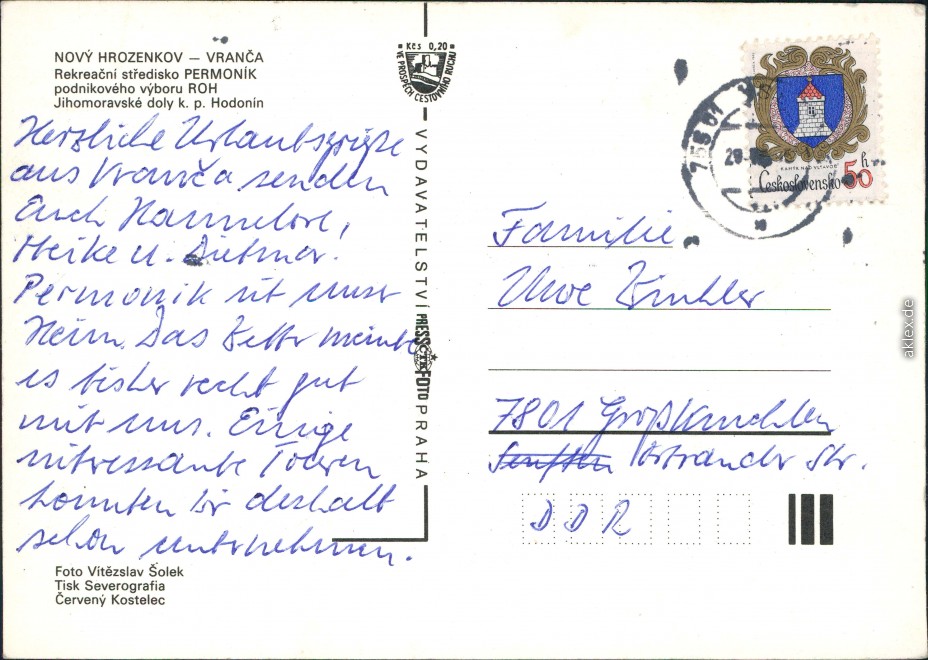 NOVÝ HROZENKOV — VRANČA
Rekreační středisko PERMONÍK
podnikového výboru ROH
Jihomoravské doly k. p. Hodonín
Herzliche Urlaubsgrüße
aus Vranča senden
Euch Hannelore,
Heike u. Dietmar.
Permonik ist unser
Heim. Das Wetter meinte
es bisher recht gut
mit uns. Einige
interessante Touren
konnten wir deshalb
schon unternehmen.
Foto Vítězslav Šolek
Tisk Severografia
Červený Kostelec
Kčs 0,20
VE PROSPĚCH CESTOVNÍHO RUCHU
VYDAVATELSTVÍ PRESSFOTO PRAHA
ČTK
755 01
KAMÝK NAD VLTAVOU
Československo 50 h
Familie
Uwe
7801 Großkmehlen
Senften Ortrander Str.
DDR
aklex.de